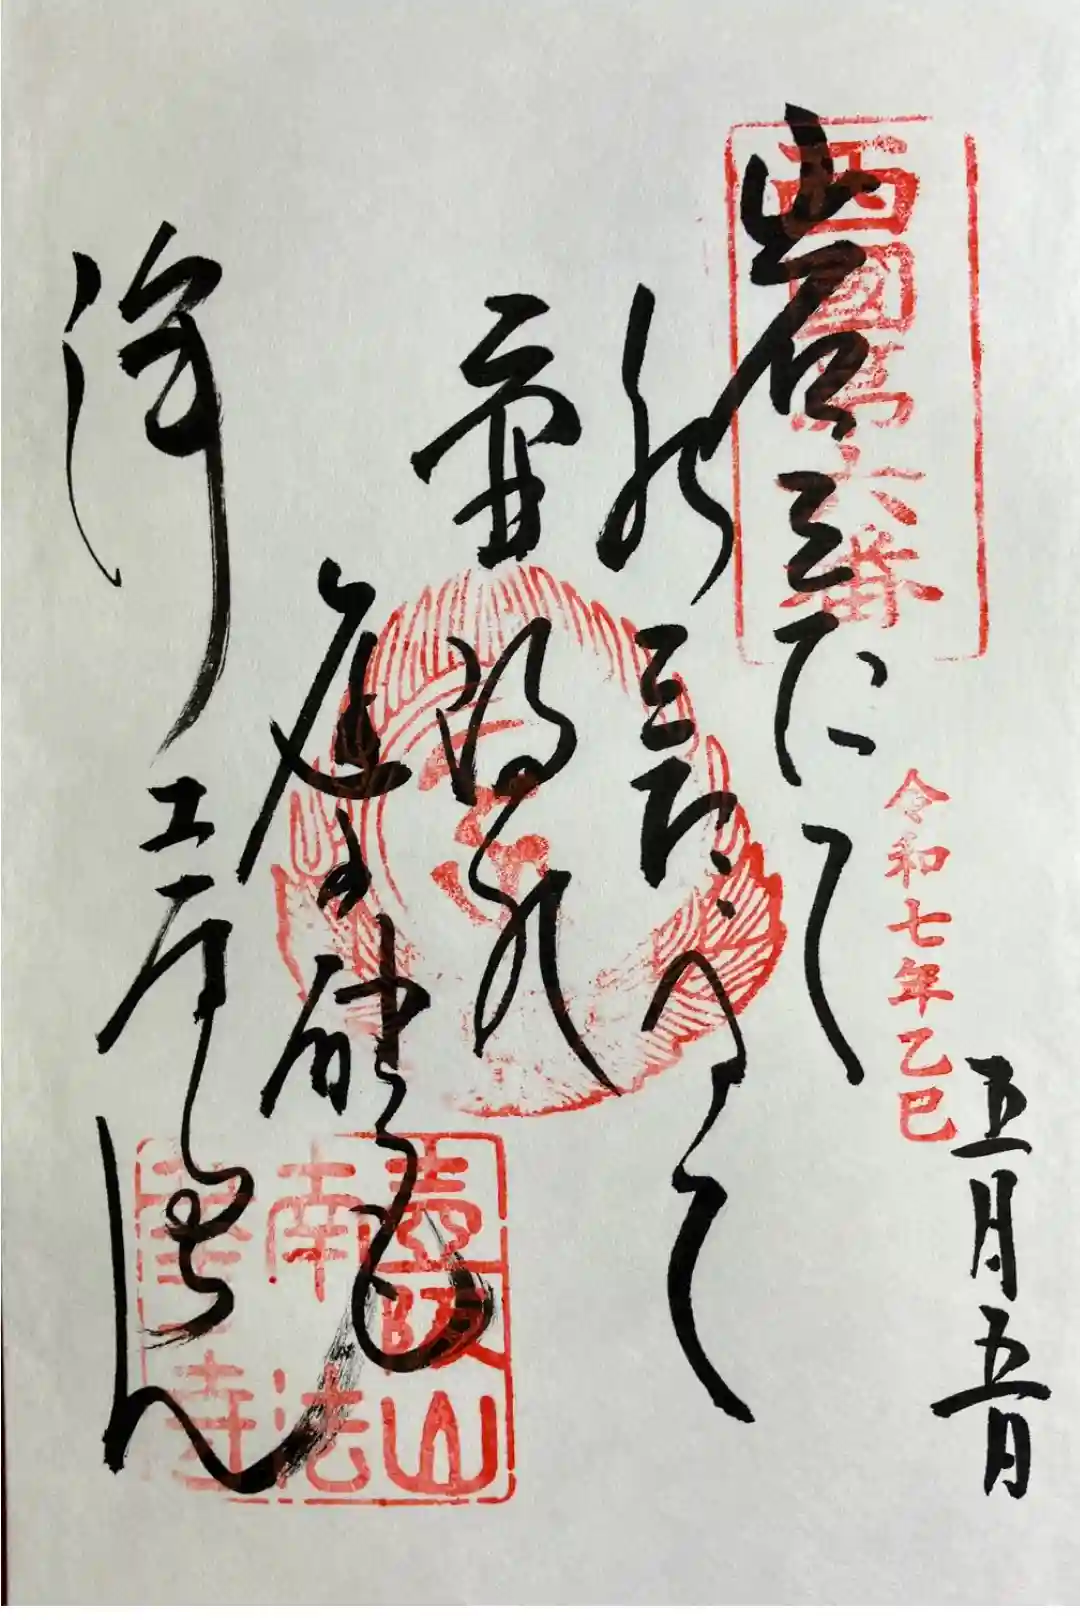 西國第六番
岩をたて
水をたゝへて
壷阪の
庭の砂も
浄土なるらん
令和七年乙巳
五月五日
壺阪山
南法
華寺